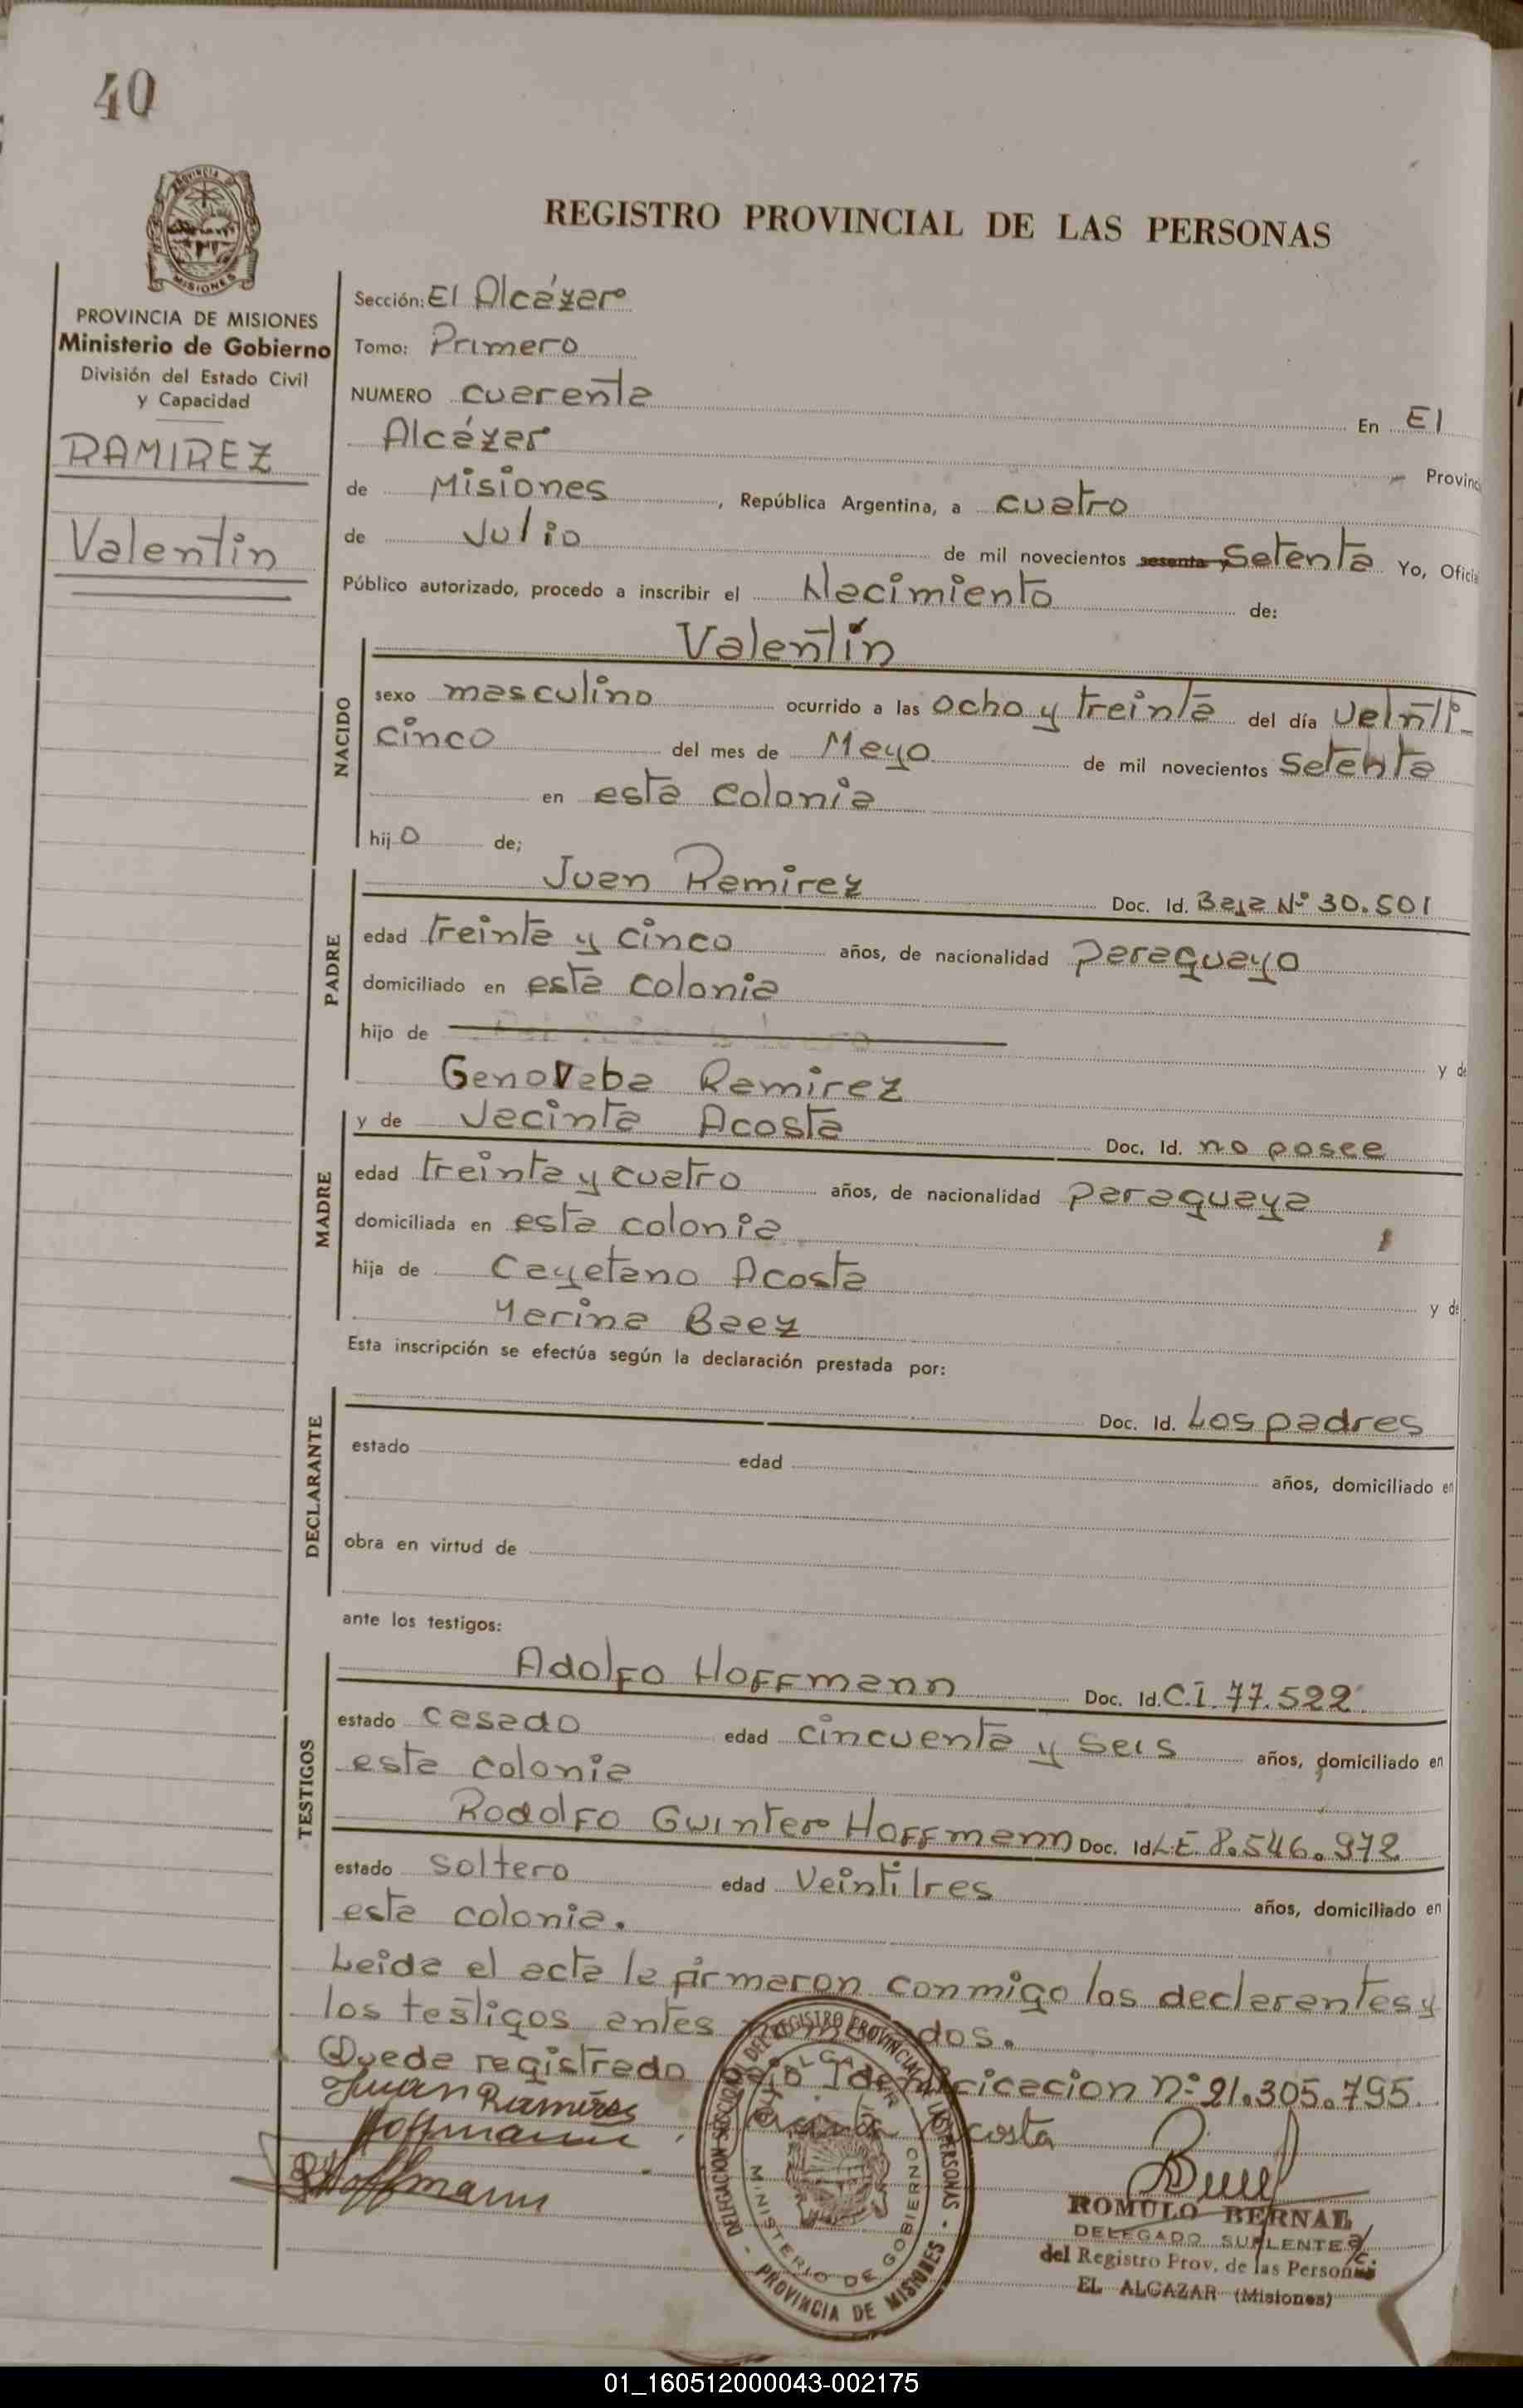 40
REGISTRO PROVINCIAL DE LAS PERSONAS
PROVINCIA DE MISIONES
Ministerio de Gobierno
División del Estado Civil
y Capacidad
RAMIREZ
Valentin
Sección: El Alcázar
Tomo: Primero
NUMERO cuarenta En El
Alcázar Provinc
de Misiones, República Argentina, a cuatro
de Julio de mil novecientos sesenta y Setenta Yo, Oficia
Público autorizado, procedo a inscribir el Nacimiento de:
Valentín
NACIDO
sexo masculino ocurrido a las ocho y treinta del día veinti
cinco del mes de Mayo de mil novecientos setenta
en esta colonia
hijo de;
PADRE
Juan Ramirez Doc. Id. Baja Nº 30.501
edad treinta y cinco años, de nacionalidad paraguayo
domiciliado en esta colonia
hijo de y de
Genoveba Ramirez
MADRE
y de Jacinta Acosta Doc. Id. no posee
edad treinta y cuatro años, de nacionalidad paraguaya
domiciliada en esta colonia
hija de Cayetano Acosta y de
Marina Baez
Esta inscripción se efectúa según la declaración prestada por:
DECLARANTE
Doc. Id. Los padres
estado edad años, domiciliado en
obra en virtud de
ante los testigos:
TESTIGOS
Adolfo Hoffmann Doc. Id. C.I. 77.522
estado casado edad cincuenta y seis años, domiciliado en
esta colonia
Rodolfo Guinter Hoffmann Doc. Id L.E. 8.546.972
estado soltero edad veintitres años, domiciliado en
esta colonia.
Leida el acta la firmaron conmigo los declarantes y
los testigos antes
Queda registrado bajo Identificicacion nº 21.305.795.
Juan Ramires
Hoffmann Acosta
RHoffmann
DELEGACION SECCIONAL DEL REGISTRO PROVINCIAL DE LAS PERSONAS
EL ALCAZAR
MINISTERIO DE GOBIERNO
PROVINCIA DE MISIONES
ROMULO BERNAL
DELEGADO SUPLENTE a/c.
del Registro Prov. de las Personas
EL ALCAZAR (Misiones)
01_160512000043-002175